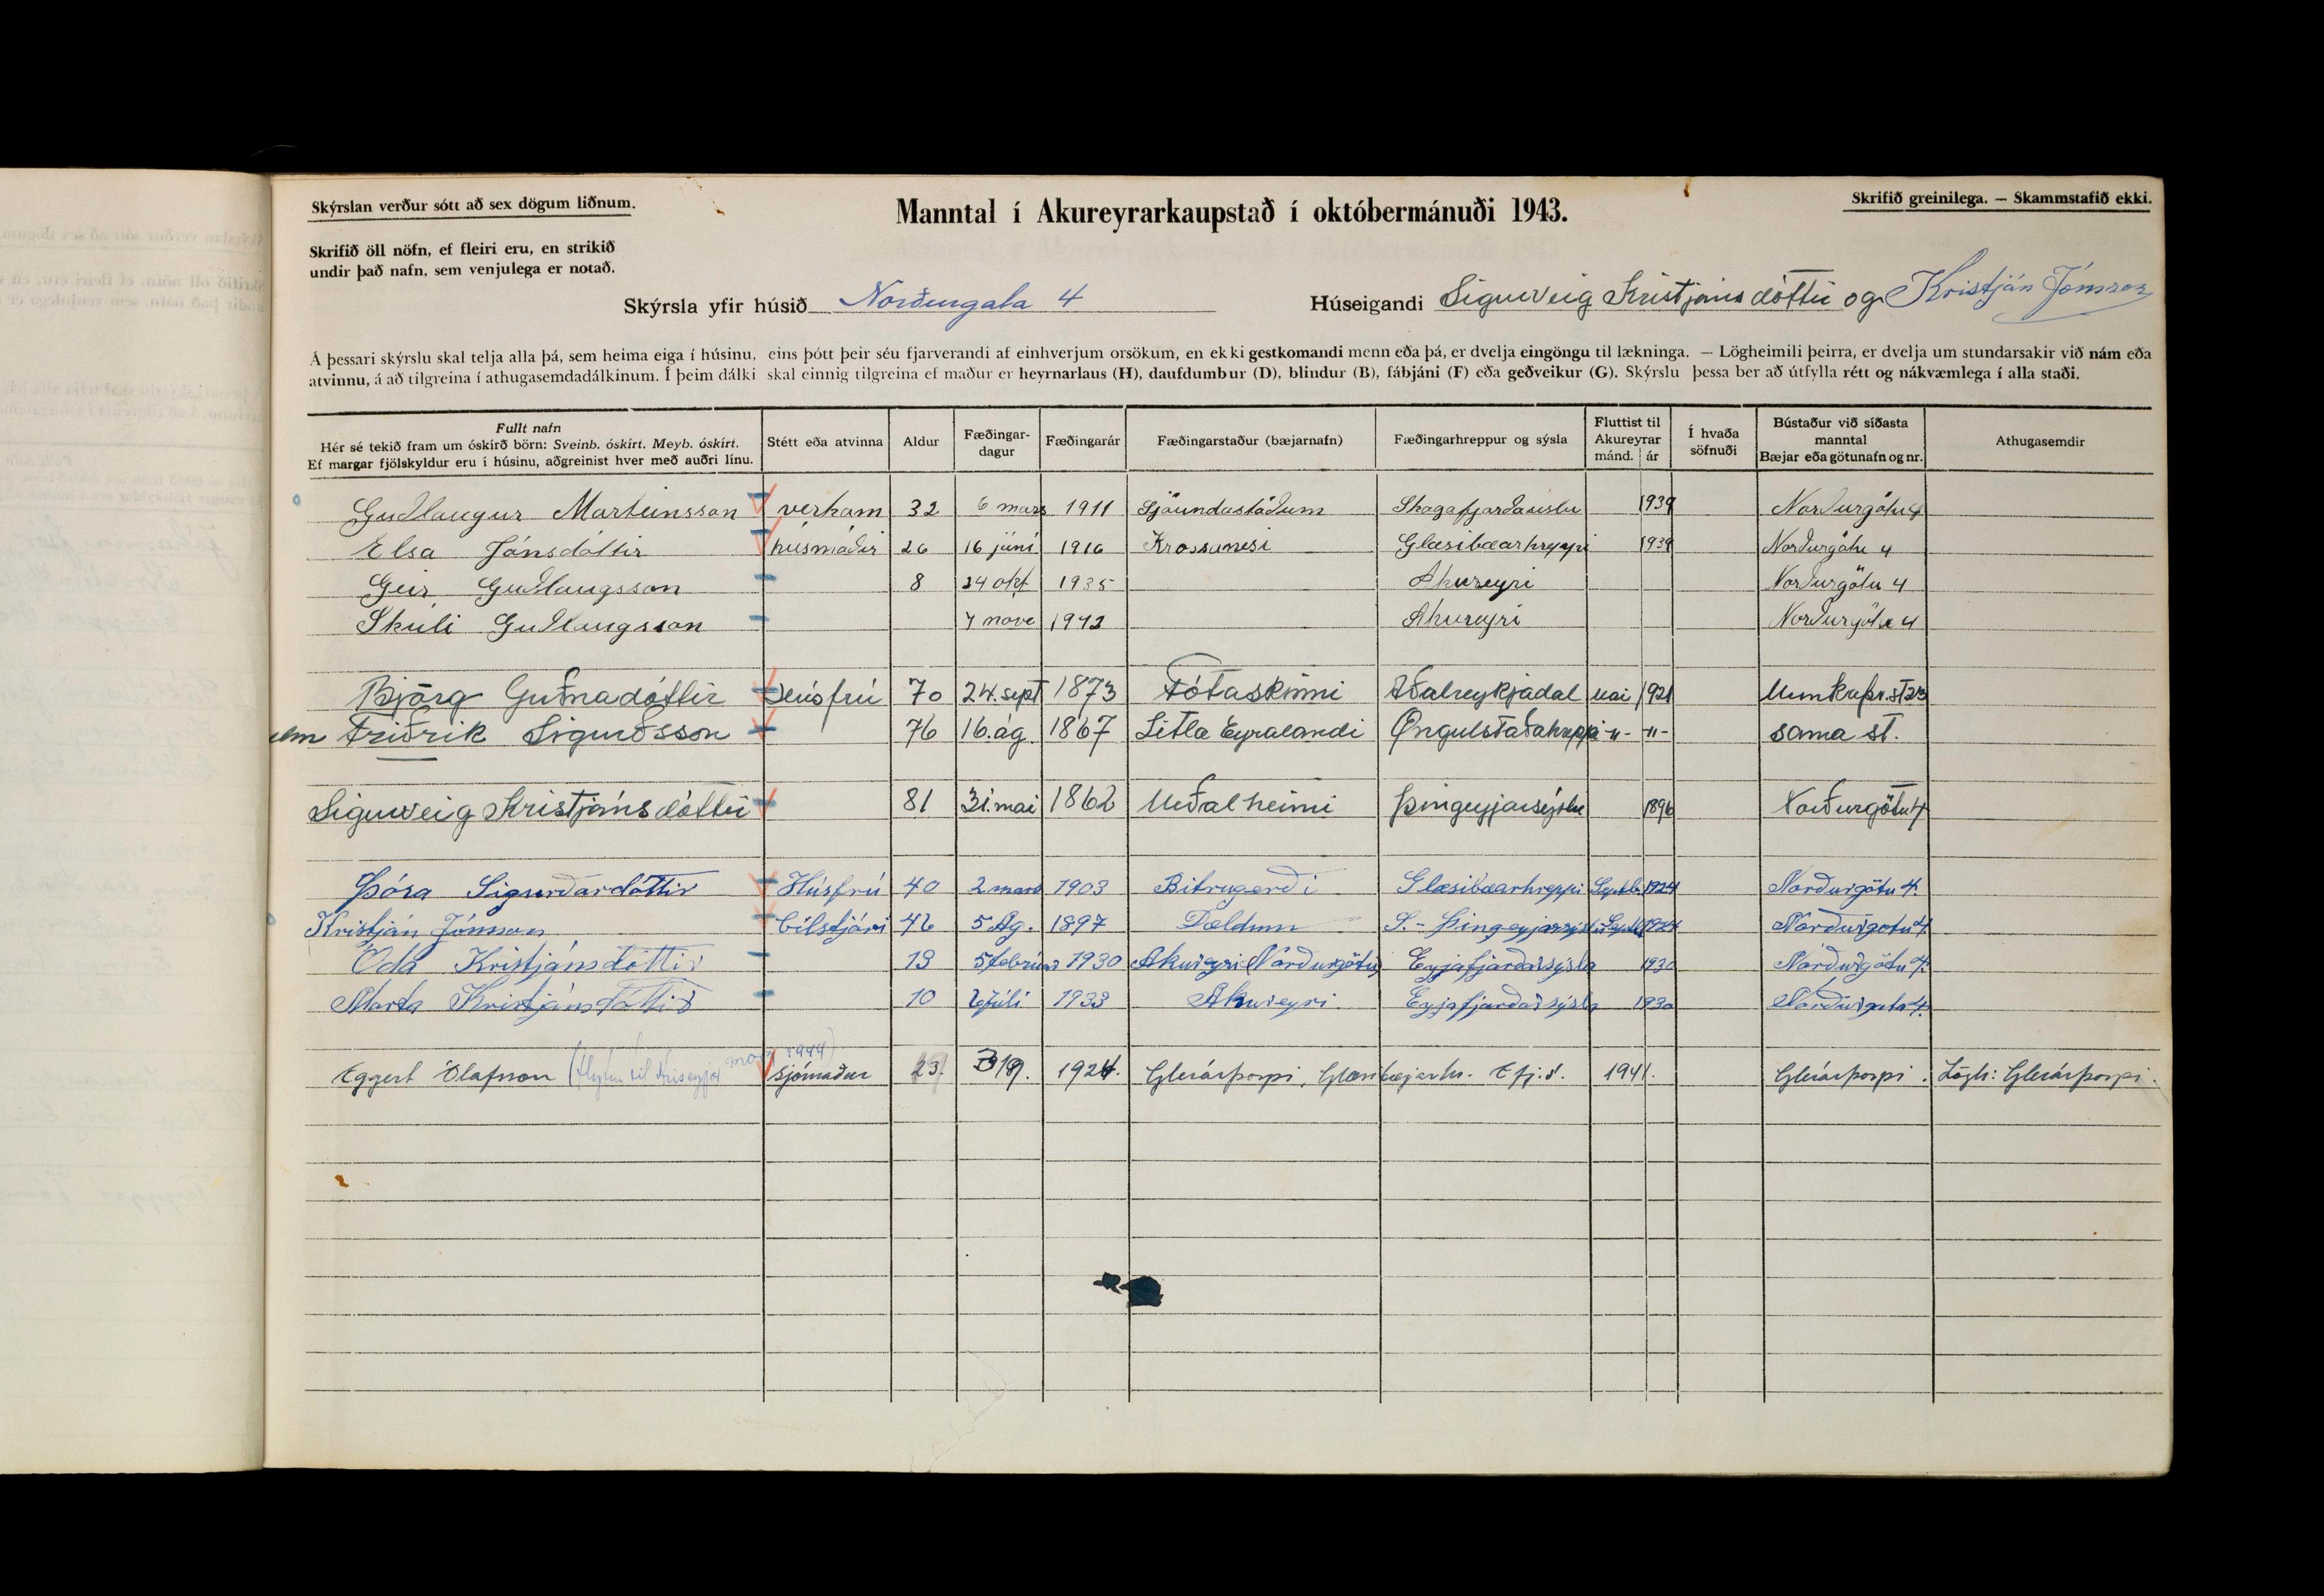 Skýrslan verður sótt að sex dögum liðnum.
Manntal í Akureyrarkaupstað í októbermánuði 1943.
Skrifið greinilega. — Skammstafið ekki.
Skrifið öll nöfn, ef fleiri eru, en strikið
undir það nafn, sem venjulega er notað.
Skýrsla yfir húsið Norðurgata 4 Húseigandi Sigurveig Kristjánsdóttir og Kristján Jónsson
Á þessari skýrslu skal telja alla þá, sem heima eiga í húsinu, eins þótt þeir séu fjarverandi af einhverjum orsökum, en ekki gestkomandi menn eða þá, er dvelja eingöngu til lækninga. — Lögheimili þeirra, er dvelja um stundarsakir við nám eða
atvinnu, á að tilgreina í athugasemdadálkinum. Í þeim dálki skal einnig tilgreina ef maður er heyrnarlaus (H), daufdumbur (D), blindur (B), fábjáni (F) eða geðveikur (G). Skýrslu þessa ber að útfylla rétt og nákvæmlega í alla staði.
Fullt nafn
Hér sé tekið fram um óskírð börn: Sveinb. óskírt. Meyb. óskírt.
Ef margar fjölskyldur eru í húsinu, aðgreinist hver með auðri línu.
Stétt eða atvinna
Aldur
Fæðingar-
dagur
Fæðingarár
Fæðingarstaður (bæjarnafn)
Fæðingarhreppur og sýsla
Fluttist til
Akureyrar
mánd. ár
Í hvaða
söfnuði
Bústaður við síðasta
manntal
Bæjar eða götunafn og nr.
Athugasemdir
Guðlaugur Marteinsson verkam 32 6 mars 1911 Sjöundastöðum Skagafjarðasíslu 1939 Norðurgötu 4
Elsa Jónsdóttir húsmóðir 26 16 júní 1916 Krossanesi Glæsibæarhreppi 1939 Norðurgötu 4
Geir Guðlaugsson 8 24 okt 1935 Akureyri Norðurgötu 4
Skúli Guðlaugsson 7 nóve 1942 Akureyri Norðurgötu 4
Björg Guðnadóttir Húsfrú 70 24. sept 1873 Fótaskinni Aðalreykjadal mai 1921 Munkaþv.st 23
Friðrik Sigurðsson 76 16. ág. 1867 Litla Eyralandi Öngulstaðahreppi -"- -"- sama st.
Sigurveig Kristjánsdóttir 81 31. mai 1862 Meðalheimi Þingeyjarsýslu 1896 Norðurgötu 4
Þóra Sigurðardóttir Húsfrú 40 2 mars 1903 Bitrugerði Glæsibæarhreppi Septbr. 1924 Norðurgötu 4.
Kristján Jónsson bílstjóri 46 5 Ág. 1897 Dældum S.-Þingeyjarsýslu Septbr 1924 Norðurgötu 4.
Oda Kristjánsdóttir 13 5 febrúar 1930 Akureyri Norðurgötu Eyjafjarðarsýsla 1930 Norðurgötu 4.
Marta Kristjánsdóttir 10 6 júlí 1933 Akureyri. Eyjafjarðarsýsla 1930 Norðurgata 4.
Eggert Ólafsson (flytur til Hríseyjar mars 1944) sjómaður 1924. Glerárþorpi, Glæsibæjarhr. Efj.s. 1941. Glerárþorpi. Lögh: Glerárþorpi.